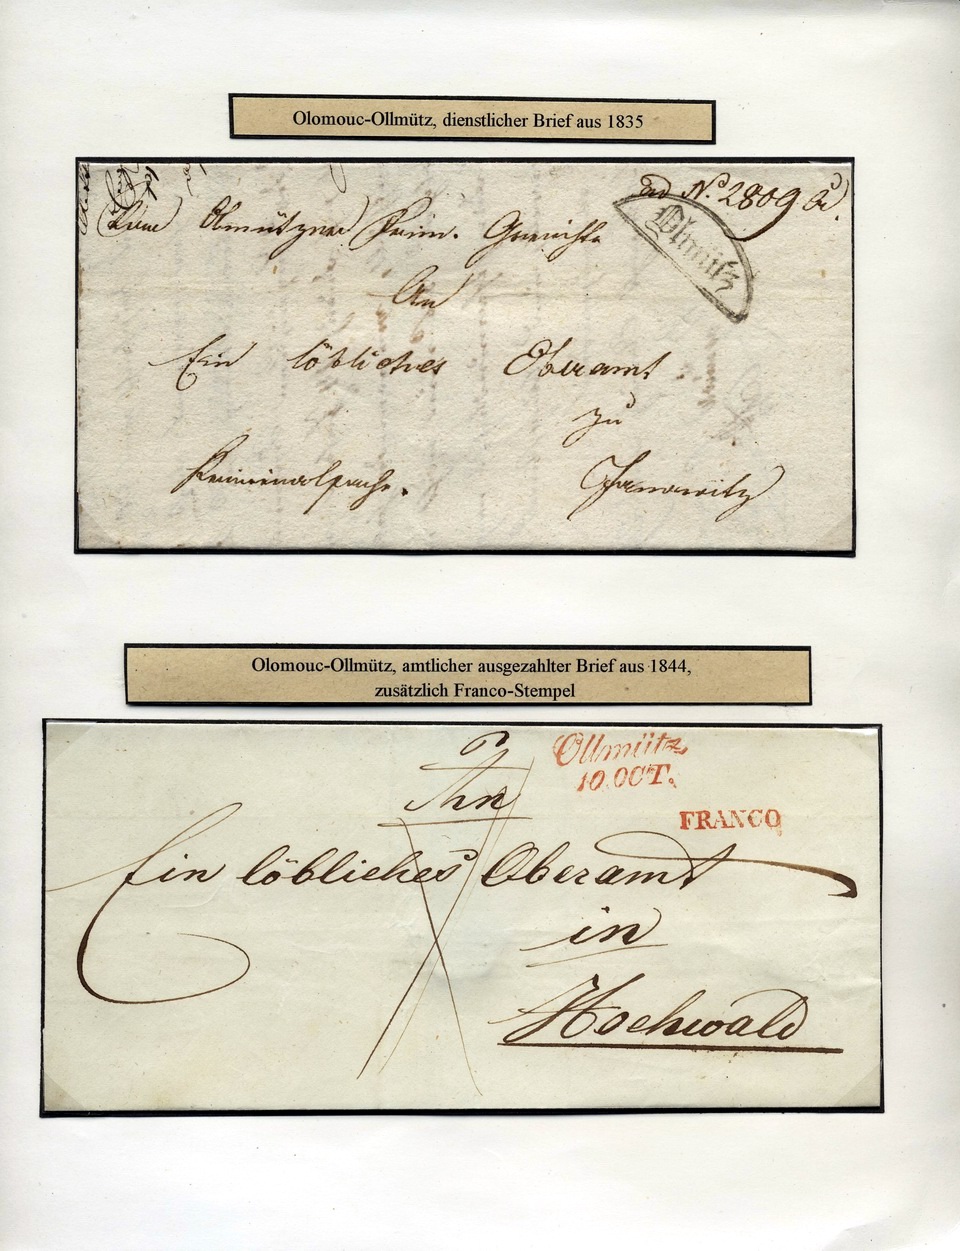 Olomouc-Ollmütz, dienstlicher Brief aus 1835
ad No. 2809
Olmütz
Vom Olmützner Krim. Gerichte
An
Ein löbliches Oberamt
zu
Kriminalsache.
Janowitz
Olomouc-Ollmütz, amtlicher ausgezahlter Brief aus 1844,
zusätzlich Franco-Stempel
Ollmütz
10. OCT.
FRANCO
An
Ein löbliches Oberamt
in
Hochwald